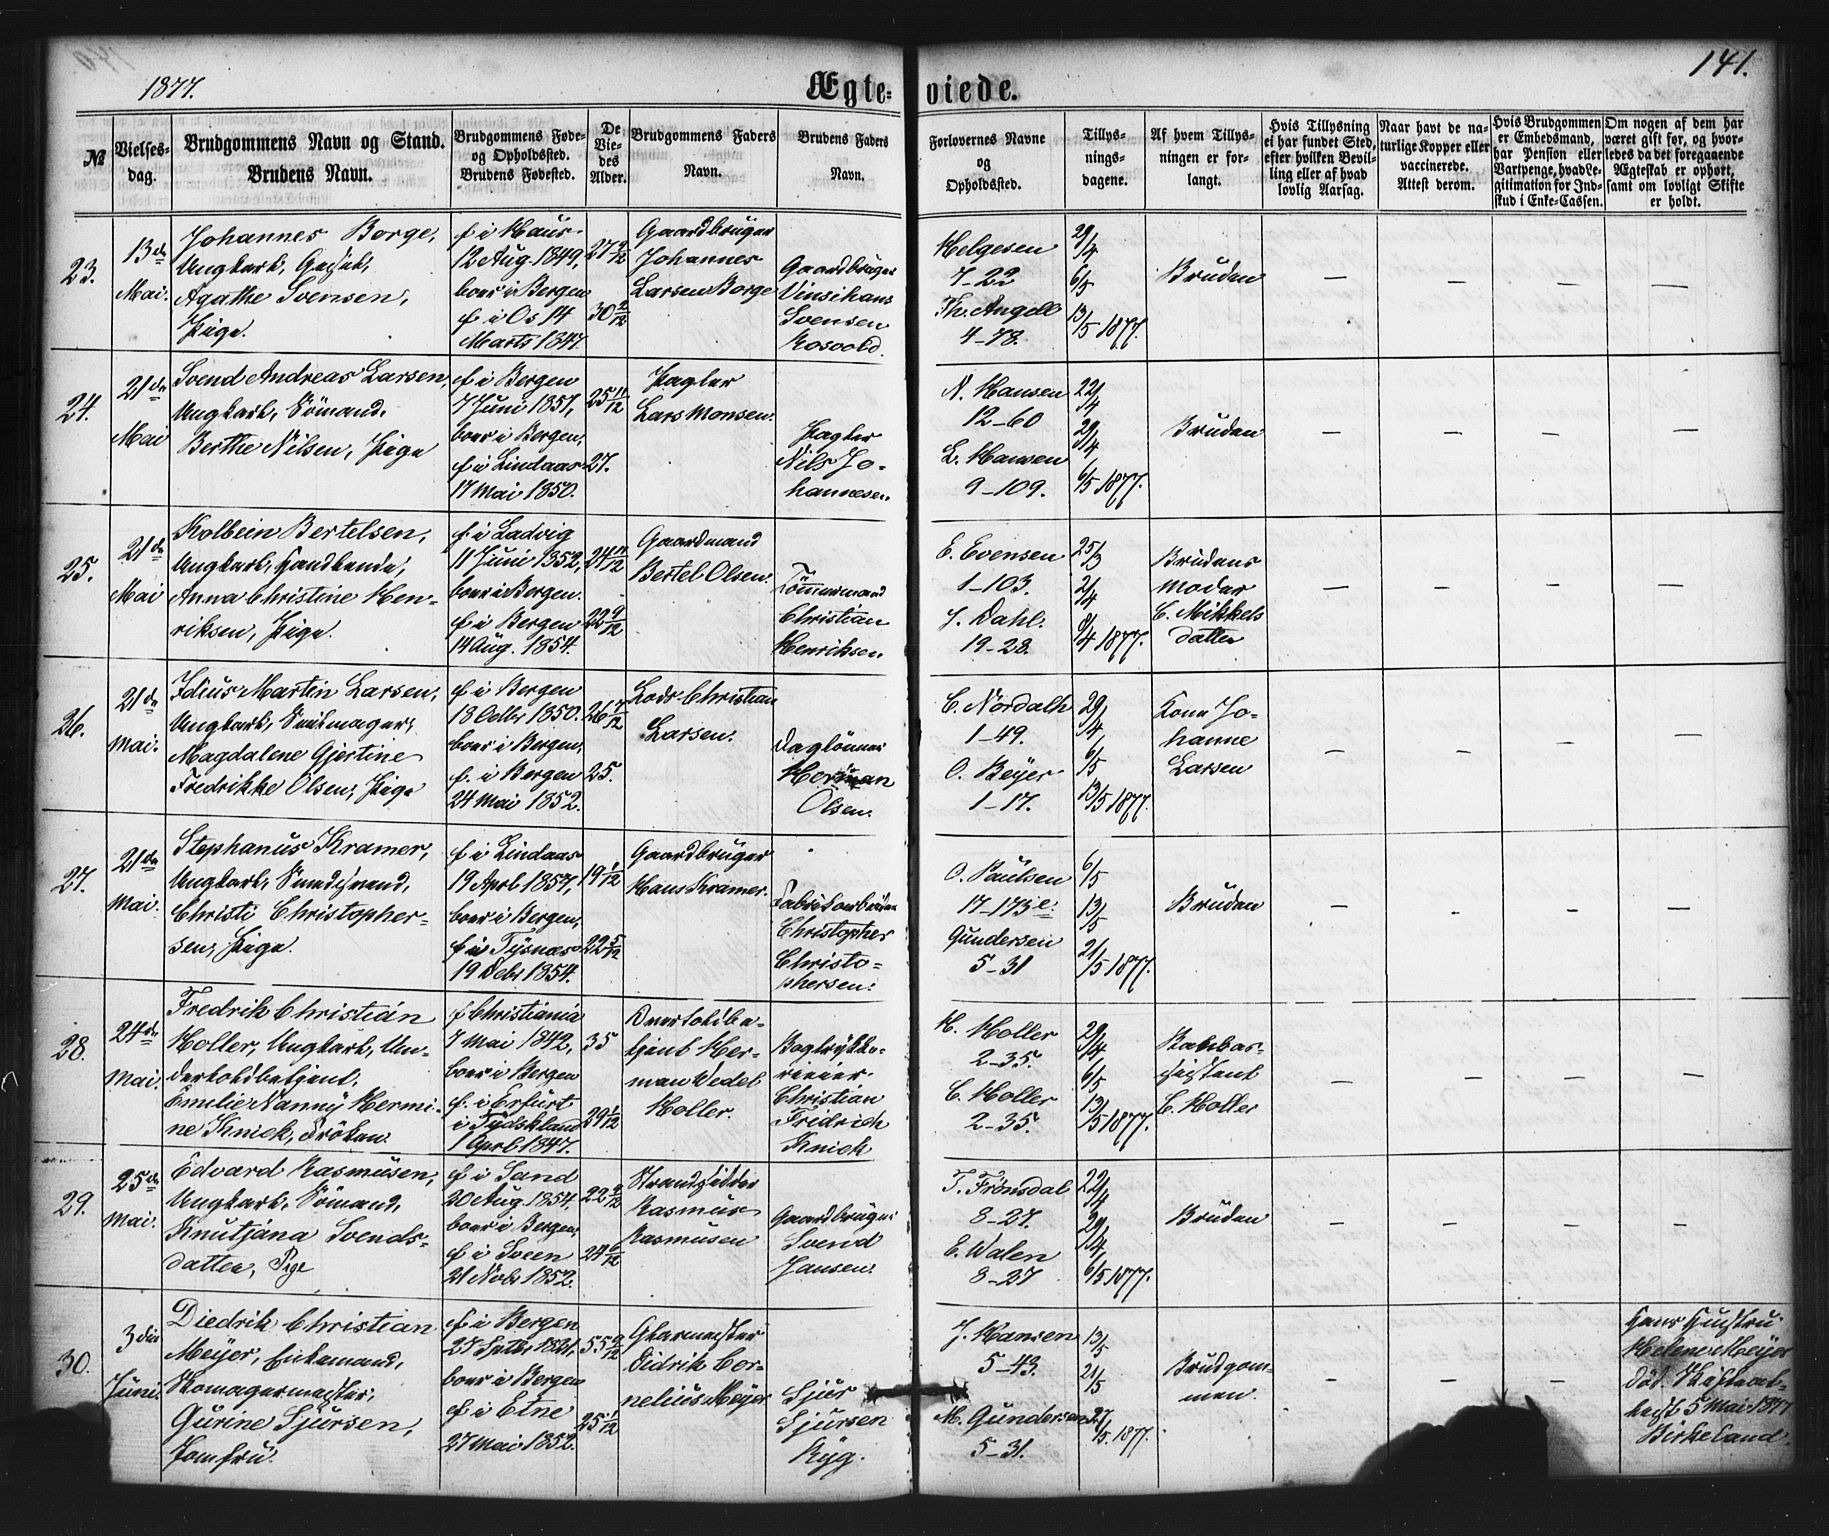 1877.
Ægte-
viede.
141.
№
Vielses-
dag.
Brudgommens Navn og Stand.
Brudens Navn.
Brudgommens Føde-
og Opholdssted.
Brudens Fødested.
De
Vie-
des
Alder.
Brudgommens Faders
Navn.
Brudens Faders
Navn.
Forlovernes Navne
og
Opholdssted.
Tillys-
nings-
dagene.
Af hvem Tillys-
ningen er for-
langt.
Hvis Tillysning
ei har fundet Sted,
efter hvilken Bevil-
ling eller af hvad
lovlig Aarsag.
Naar havt de na-
turlige Kopper eller
vaccinerede.
Attest derom.
Hvis Brudgommen
er Embedsmand,
har Pension eller
Vartpenge, hvad Le-
gitimation for Ind-
skud i Enke-Cassen.
Om nogen af dem har
været gift før, og hvor-
ledes da det foregaaende
Ægteskab er ophørt,
samt om lovligt Skifte
er holdt.
23.
13de
Mai.
Johannes Borge,
Ungkarl,
Agathe Svensen,
Pige.
f i Haus
12 Aug. 1849,
boer i Bergen
f i Os 14
Marts 1847.
27 9/12
30 2/12
Gaardbruger
Johannes
Larsen Borge
Gaardbruger
Svensen
Rosvold.
Helgesen
7-22
Th. Angell
4-78.
29/4
6/5
13/5 1877.
Bruden
— — — —
24.
21de
Mai
Svend Andreas Larsen,
Ungkarl, Sömand.
Berthe Nilsen, Pige
f i Bergen
7 Juni 1851,
boer i Bergen,
f i Lindaas
17 Mai 1850.
25 11/12
27.
Lars Monsen.
Nils Jo-
hannesen.
N. Hansen
12-60
L. Hansen
9-109.
22/4
29/4
6/5 1877.
Bruden
— — — —
25.
21de
Mai
Kolbein Bertelsen,
Ungkarl,
Anna Christine Hen-
riksen, Pige.
f. i Ladvig
11 Juni 1852,
boer i Bergen.
f. i Bergen
14 Aug. 1854.
24 11/12
22 9/12
Gaardmand
Bertel Olsen.
Tömmermand
Christian
Henriksen
E. Evensen
1-103.
J. Dahl.
19-28.
25/3
2/4
8/4 1877.
Brudens
Moder
C. Mikkels
datter
— — — —
26.
21de
Mai.
Idius Martin Larsen,
Ungkarl, Seilmager,
Magdalene Gjertine
Fredrikke Olsen, Pige
f i Bergen
18 Octbr 1850.
boer i Bergen,
f. i Bergen
24 Mai 1852.
26 7/12
25.
Lods Christian
Larsen.
Daglönner
Herman
Olsen.
C. Nordahl
1-49.
O. Beyer
1-17.
29/4
6/5
13/5 1877.
Kone Jo-
hanne
Larsen
— — — —
27.
21de
Mai.
Stephanus Kramer,
Ungkarl,
Christi Christopher-
sen, Pige.
f i Lindaas
19 Aprl 1857,
boer i Bergen,
f i Tysnæs
19 Debr 1854.
19 1/12
22 5/12
Gaardbruger
Hans Kramer.
Fabrikarbeider
Christopher
Christo-
phersen.
O. Paulsen
17-173e.
Gundersen
5-31
6/5
13/5
21/5 1877.
Bruden
— — — —
28.
24de
Mai.
Fredrik Christian
Holler, Ungkarl, Un-
dertoldbetjent,
Emilie Nanny Hermi-
ne Knick, Fröken.
f Christiania
7 Mai 1842,
boer i Bergen
f. i Erfurt
i Tydskland
1 Aprl 1847.
35
29 1/12
Overtoldbe-
tjent Her-
man Wedel
Holler.
Bogtrykke-
rieier
Christian
Fridrich
Knick
H. Holler
2-35.
C. Holler
2-35.
29/4
6/5
13/5 1877.
C. Holler
— — — —
29.
25de
Mai.
Edvard Rasmusen,
Ungkarl, Sömand,
Knutjana Svends-
datter, Pige
f i Sand
20 Aug. 1854,
boer i Bergen,
f i Sveen
21 Nobr 1852.
22 9/12
24 6/12
Strandsidder
Rasmus
Rasmusen
Gaardbruger
Svend
Jansen.
T. Frönsdal
8-27.
E. Walen
8-27
22/4
29/4
6/5 1877.
Bruden
— — — —
30.
3die
Juni.
Diedrik Christian
Meyer, Enkemand,
Skomagermester,
Gurine Sjursen,
Jomfru.
f i Bergen
25 Septbr 1821,
boer i Bergen
f i Etne
27 Mai 1852.
55 9/12
25 1/12
Glarmester
Didrik Cor-
nelius Meyer
Sjur
Sjursen
Ryg.
J. Hansen
5-43.
M. Gundersen
5-31.
13/5
21/5
27/5 1877.
Brudgom-
men.
— — —
Hans Hustru
Helene Meyer
död.
5 Mai 1877
Birkeland.